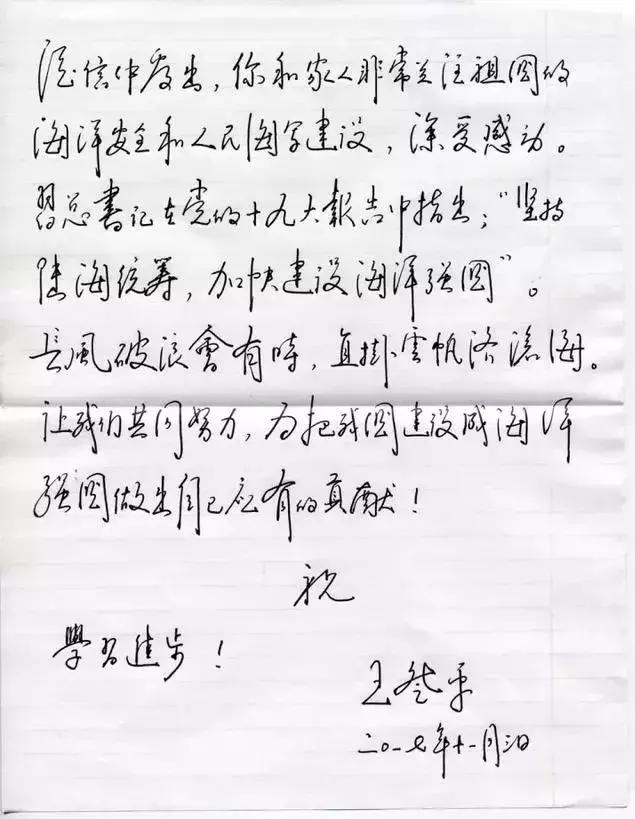 从信中看出，你和家人非常关注祖國的
海洋安全和人民海军建设，深受感动。
習总書记在党的十九大報告中指出：“坚持
陆海统筹，加快建设海洋强國”。
長風破浪會有時，直掛雲帆济滄海。
让我们共同努力，为把我國建设成海洋
强國做出自己应有的贡献！
祝
學習進步！
王 平
二〇一七年十一月三日